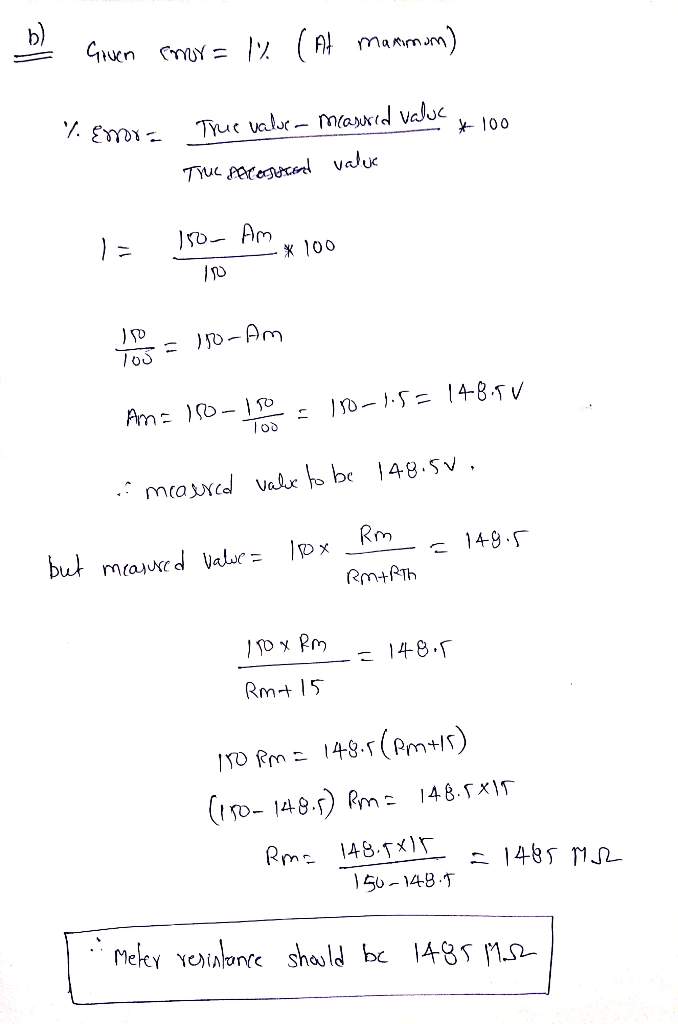 b) Given error = 1% (At maximum)
% Error = True value - measured value * 100
True value
1 = 150 - Am * 100
150
150 = 150 - Am
100
Am = 150 - 150 = 150 - 1.5 = 148.5V
100
∴ measured value to be 148.5V.
but measured value = 150 x Rm = 148.5
Rm+RTh
150 x Rm = 148.5
Rm + 15
150 Rm = 148.5 (Rm+15)
(150 - 148.5) Rm = 148.5x15
Rm = 148.5x15 = 1485 MΩ
150-148.5
∴ Meter resistance should be 1485 MΩ